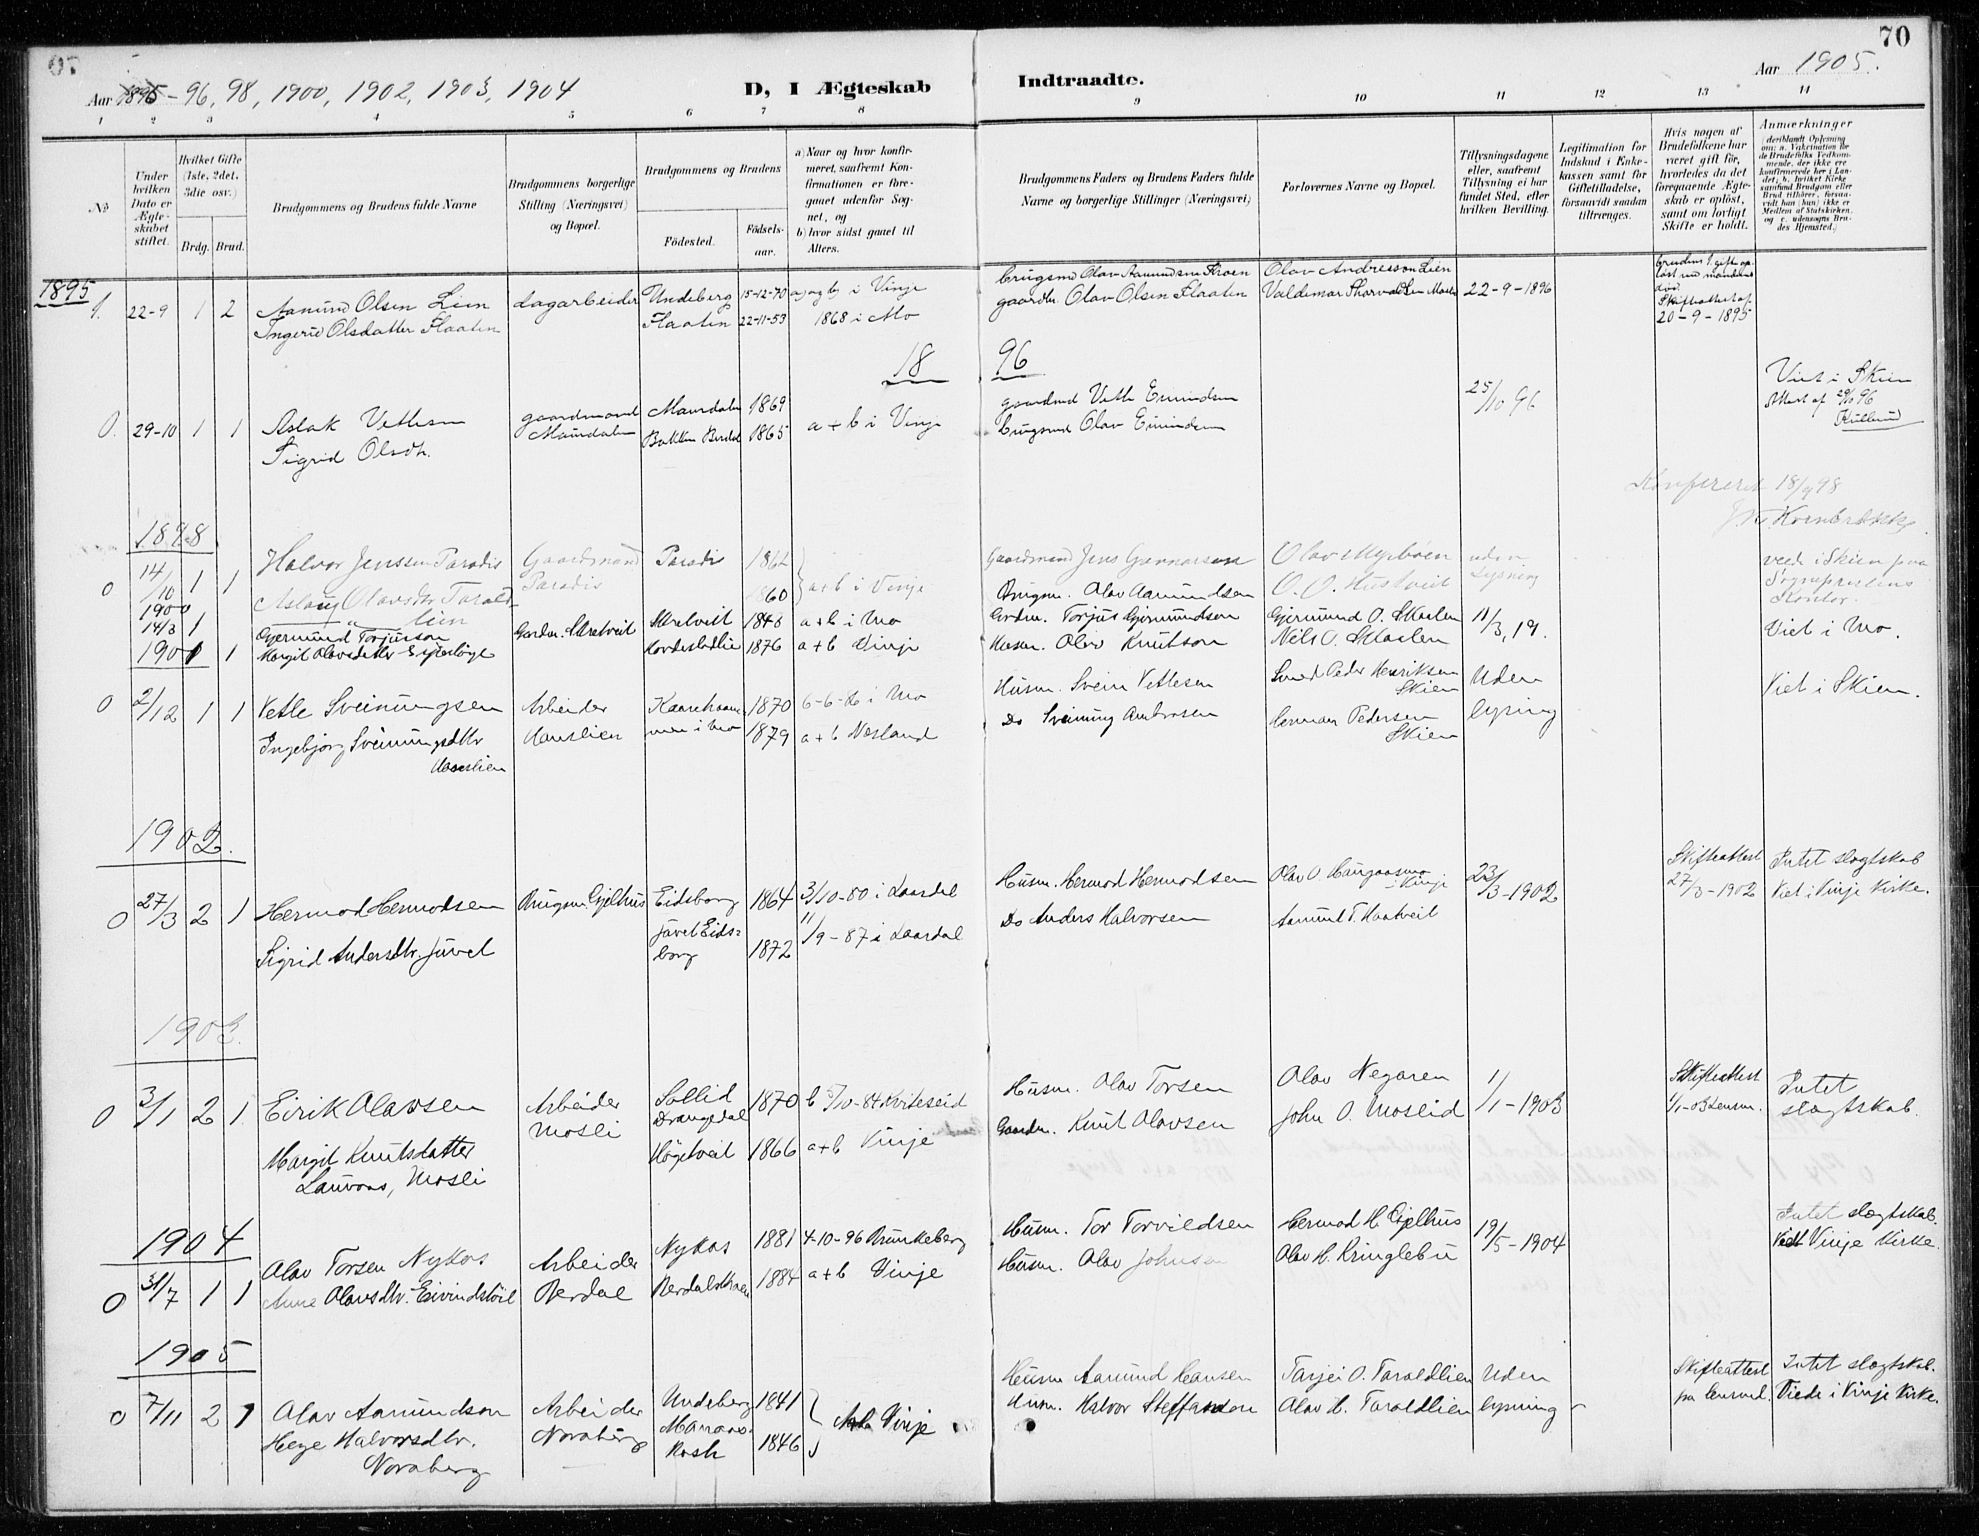 70
Aar 1895 - 96, 98, 1900, 1902, 1903, 1904
D, I Ægteskab Indtraadte.
Aar 1905.
1 2 3 4 5 6 7 8 9 10 11 12 13 14
No
Under hvilken Dato er Ægteskabet stiftet.
Hvilket Gifte (1ste, 2det, 3die osv.)
Brdg. Brud.
Brudgommens og Brudens fulde Navne
Brudgommens borgerlige Stilling (Næringsvei) og Bopæl.
Brudgommens og Brudens
Fødested. Fødselsaar.
a) Naar og hvor konfirmeret, saafremt Konfirmationen er foregaaet udenfor Sognet, og
b) hvor sidst gaaet til Alters.
Brudgommens Faders og Brudens Faders fulde Navne og borgerlige Stillinger (Næringsvei)
Forlovernes Navne og Bopæl.
Tillysningsdagene eller, saafremt Tillysning ei har fundet Sted, efter hvilken Bevilling.
Legitimation for Indskud i Enkekassen samt for Giftetilladelse, forsaavidt saadan tiltrænges.
Hvis nogen af Brudefolkene har været gift før, hvorledes da det foregaaende Ægteskab er opløst, samt om lovligt Skifte er holdt.
Anmærkninger
1895
1. 22-9 1 2 Aamund Olsen Lien dagarbeider Undeberg 15-12-70 a) og b) i Vinje
Ingerid Olsdatter Flaaten Flaaten 22-11-53 1868 i Mo
brugsmd Olav Aamundsen Olav Andresson Lien
gaardbr. Olav Olsen Flaaten Valdemar 22-9-1896
Skifteattest af 20-9-1895
18 96
0. 29-10 1 1 Aslak Vetlesen gaardmand 1869 a + b i Vinje
Sigrid Olsdtr. Bakken Berdal 1865
gaardmd Vetle Eivindsen 25/10 96
brugsmd Olav Eivindsen
Viet i Skien
Attest af 29/10 96
Konfereret 18/9 98
1898
0 14/10 1 1 Halvor Jenssen Paradis Gaardmand Paradis Paradis 1862
Aslaug Olavsdtr Tarald-
lien 1860 a+b i Vinje
Gaardmand Jens Gunnarsson Olav Myrbøen uden
Brugsm. Olav Aamundsen O. O. Hustveit Lysning
viede i Skien paa Sogneprestens Kontor.
1900
14/3 1 Gjermund Torjusson Gardm. Skretveit Skretveit 1843 a+b i Mo
Gardm. Torjus Gjermundson Gjermund O. Skaalen 11/3, 19. Viet i Mo.
1901 1 Margit Olavsdatter 1876 a+b Vinje
Husm. Olav Knutson Nils O. Skaalen
0 2/12 1 1 Vetle Sveinungsen Arbeider 1870 i Mo
Ingebjørg Sveinungsdtr i Mo 1879 a+b Nesland
Husm. Svein Vetlesen Smed Peder Henriksen Skien Uden
Do Sveinung Ambrosen Herman Pedersen Skien lysning
Viet i Skien.
1902.
0 27/3 2 1 Hermod Hermodsen Brugsm Gjelhus Eidsborg 1864 3/10-80 i Laardal
Sigrid Andersdtr. Juvet Juvet Eids=
borg 1872 11/9-87 i Laardal
Husm. Hermod Hermodsen Olav O. Haugaasmo i Vinje 23/3-1902
Do Anders Halvorsen Aamund T. Haatveit
Skifteattest 27/3-1902
Intet slægtskab
Viet i Vinje Kirke.
1903.
0 3/1 2 1 Eirik Olavsen Arbeider Sollid Drangedal 1870 b 5/10-84 Kviteseid
Margit Knutsdatter Mosli Høgetveit 1866 a+b Vinje
Lauvaas, Mosli
Husm. Olav Torsen Olav Negaren 1/1-1903
Gaardm. Knut Olavsen John O. Mosleid
Skifteattest 1/1-03 Lensm.
Intet slægtskab.
1904
0 31/7 1 1 Olav Torsen Nykos Arbeider Nykos 1881 4-10-96 Brunkeberg
Anne Olavsdtr. Eivindstøil Berdal 1884 a+b Vinje
Husm. Tor Torvildsen Hermod H. Gjelhus 19/5-1904
Husm. Olav Johnsen Olav H. Kringlebu
Intet slægtskab.
Viet Vinje Kirke.
1905
0 7/11 2 1 Olav Aamundson Arbeider Undeberg 1841
Hege Halvorsdtr. Noraberg 1846 Vinje
Noraberg
Husm Aamund Hansen Tarjei O. Taraldlien Uden
Husm. Halvor Steffanson Olav H. Taraldlien lysning
Skifteattest fra lensmd.
Intet slægtskab.
Viede i Vinje Kirke.